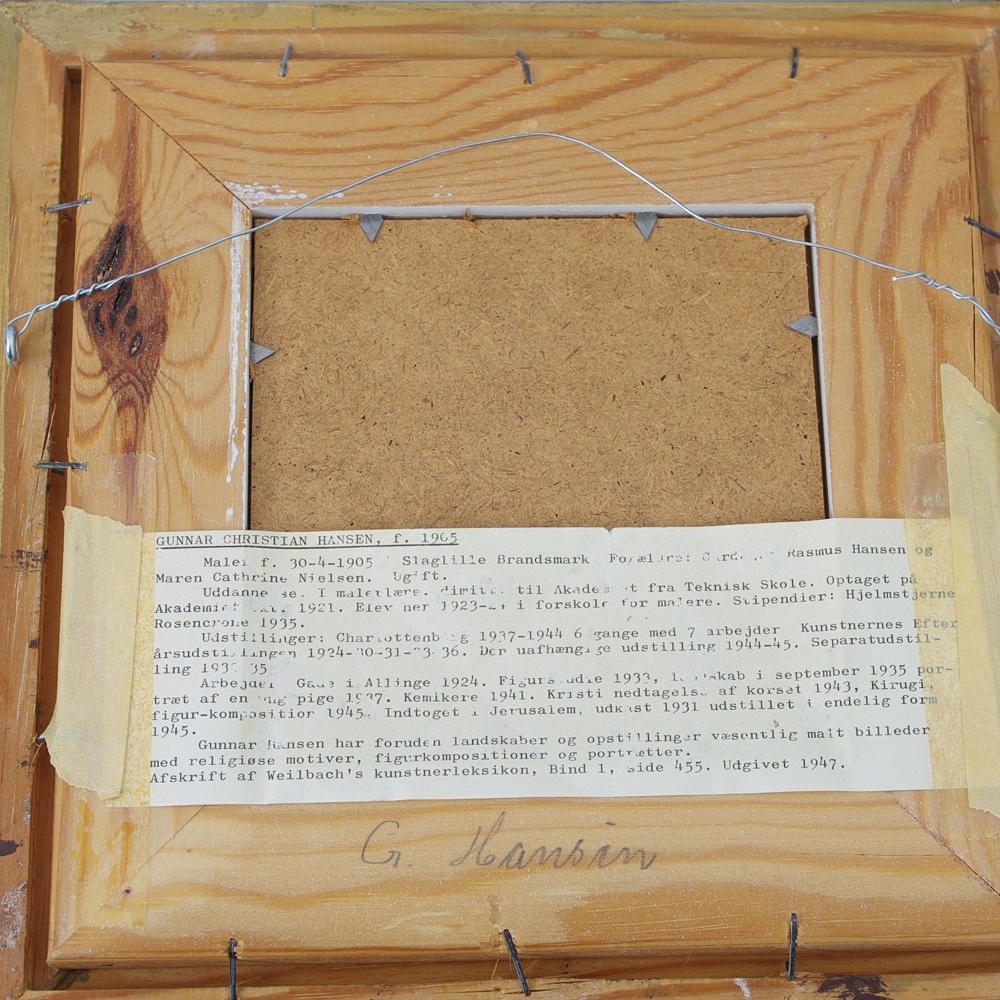 GUNNAR CHRISTIAN HANSEN, f. 1905
Maler f. 30-4-1905 Slaglille Brandsmark Forældre: Rasmus Hansen og
Maren Cathrine Nielsen. Ugift.
Uddannelse. I malerlære. til fra Teknisk Skole. Optaget på
1921. Elev i forskole for malere. Stipendier: Hjelmstjerne
Rosencrone 1935.
Udstillinger: Charlottenborg 1937-1944 6 gange med 7 arbejder Kunstnernes Efter
årsudstillingen 1924-30-31-33-36. Den uafhængige udstilling 1944-45. Separatudstil-
ling 35
Arbejder Gade i Allinge 1924. Figurstudie 1933, landskab i september 1935 por-
træt af en ung pige 1937. Kemikere 1941. Kristi nedtagelse af korset 1943, Kirugi,
figur-komposition 1945. Indtoget i Jerusalem, udkast 1931 udstillet i endelig form
1945.
Gunnar Hansen har foruden landskaber og opstillinger væsentlig malt billeder
med religiøse motiver, figurkompositioner og portrætter.
Afskrift af Weilbach's kunstnerleksikon, Bind 1, side 455. Udgivet 1947.
G. Hansin